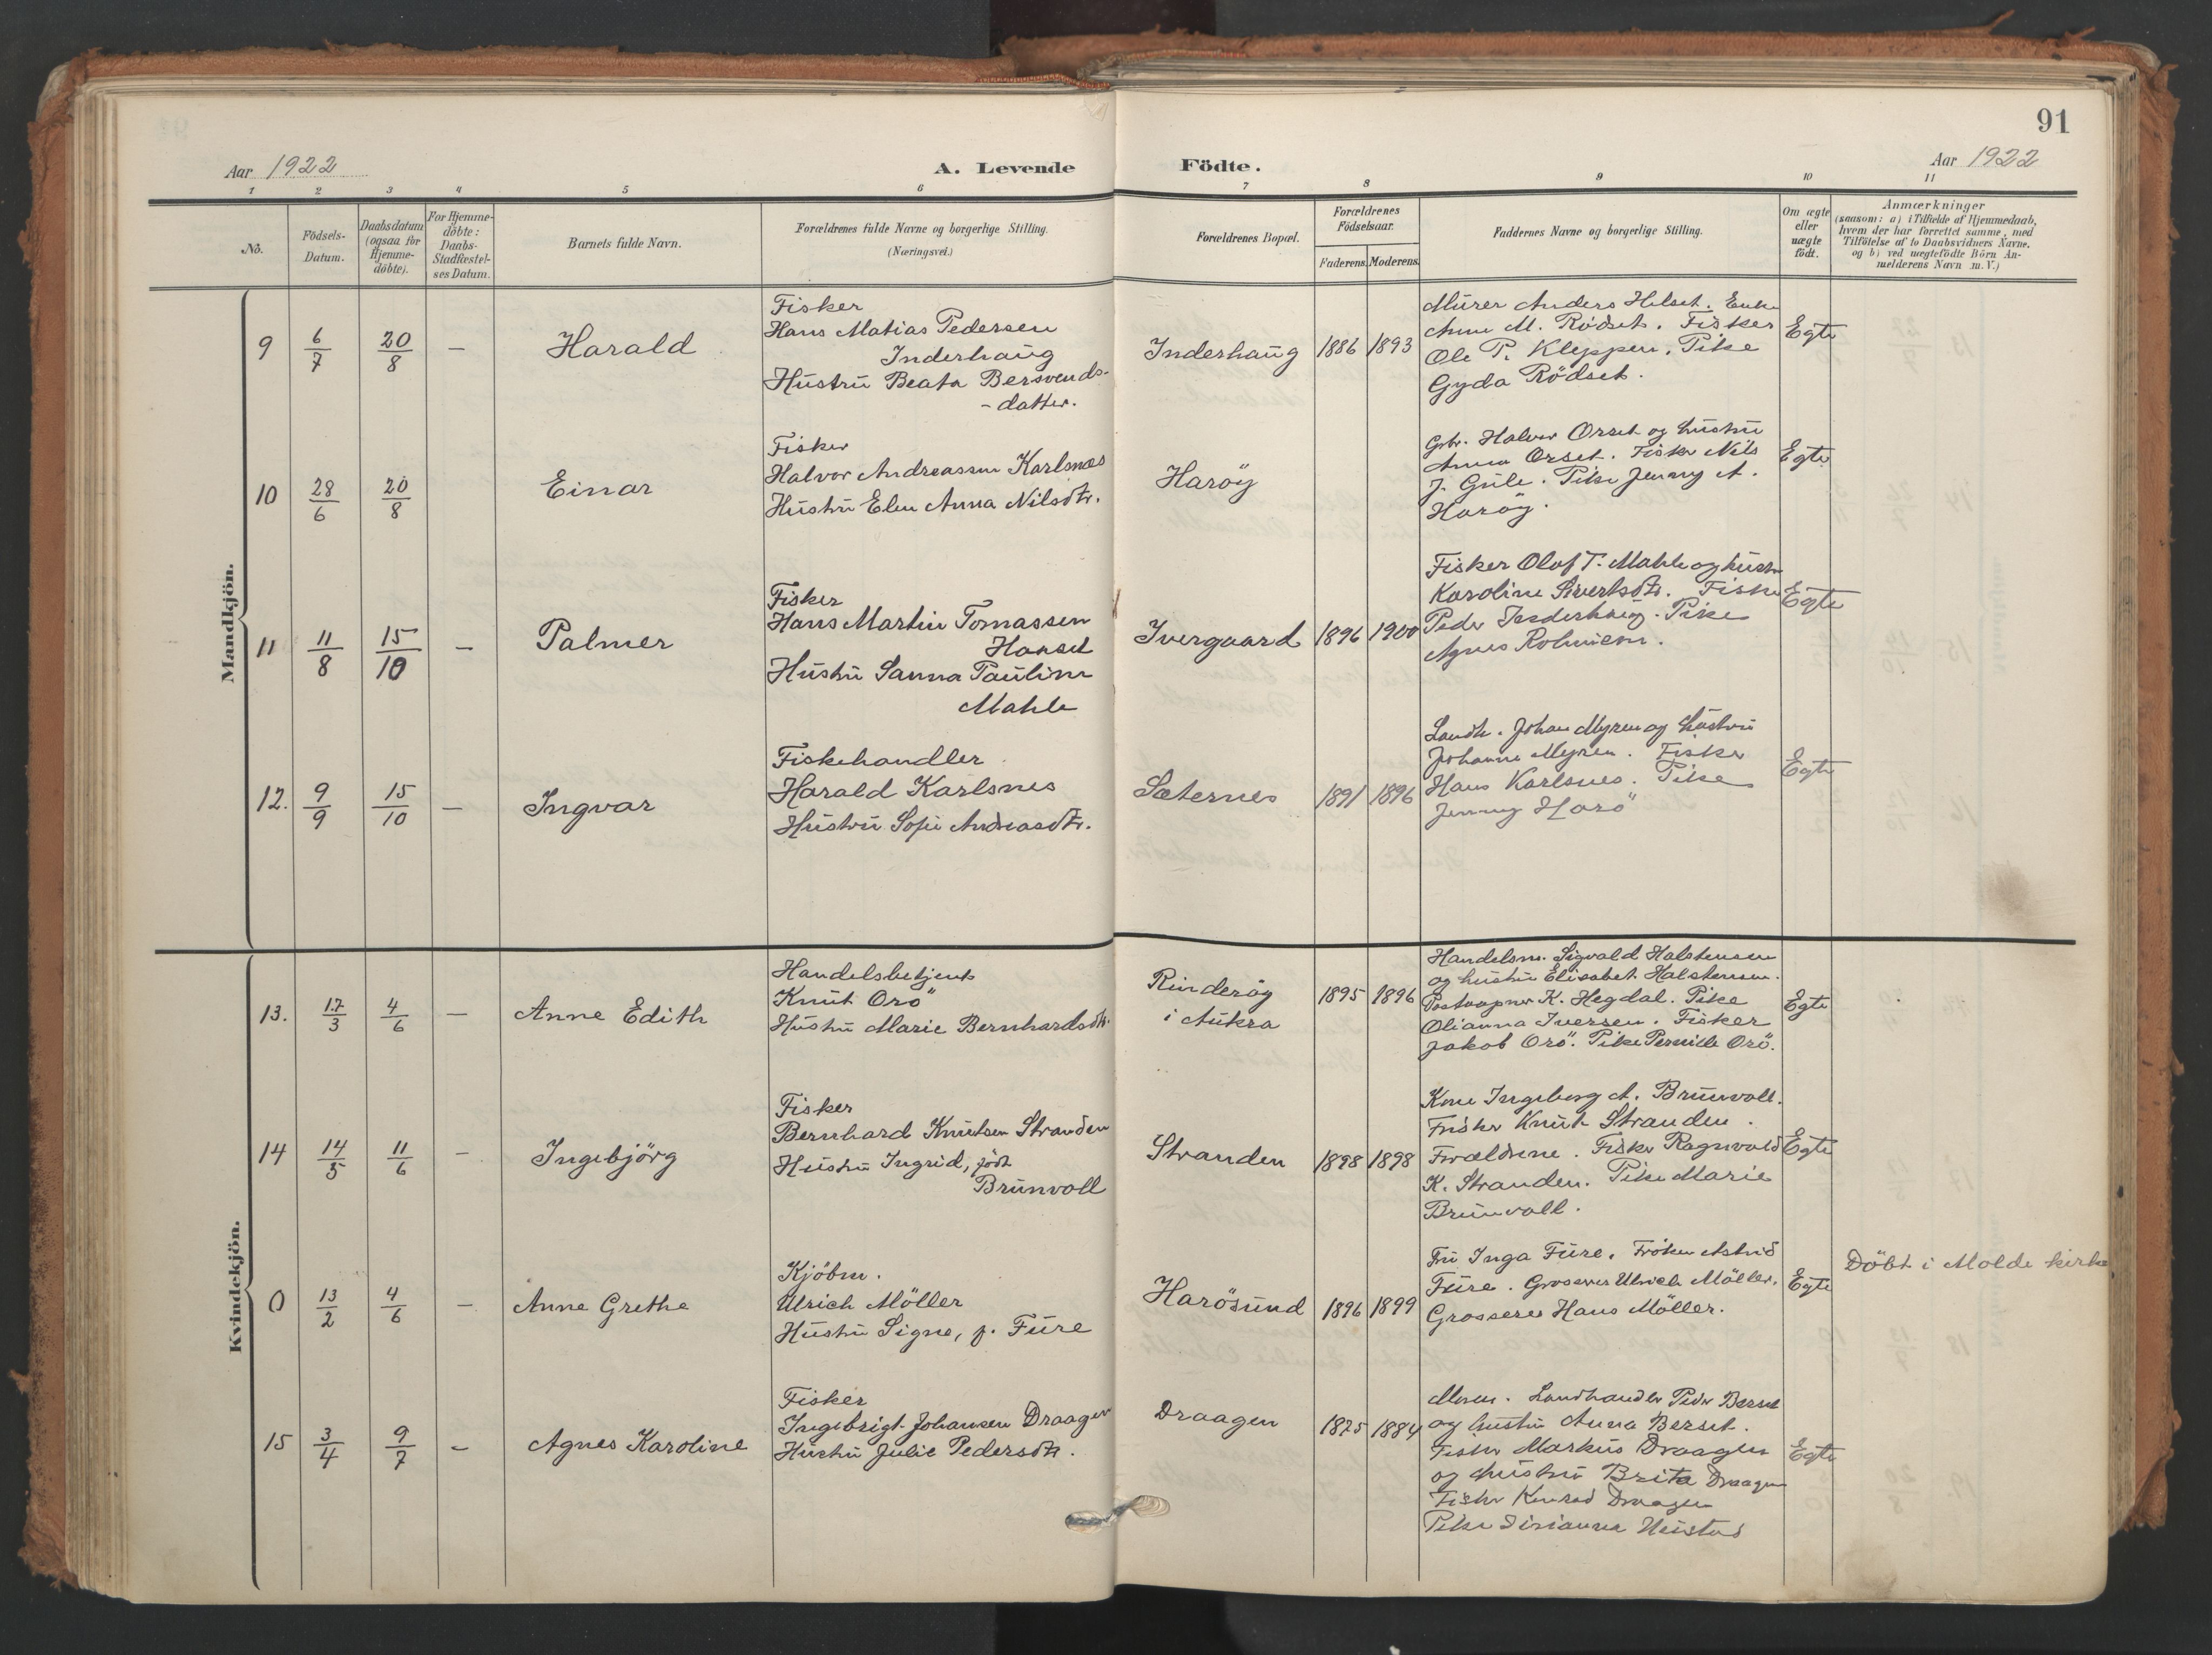 91
Aar 1922
A. Levende Födte.
Aar 1922
1 2 3 4 5 6 7 8 9 10 11
Nò.
Födsels-
Datum.
Daabsdatum
(ogsaa for
Hjemme-
döbte).
For Hjemme-
döbte:
Daabs-
Stadfæstel-
ses Datum.
Barnets fulde Navn.
Forældrenes fulde Navne og borgerlige Stilling.
(Næringsvei.)
Forældrenes Bopæl.
Forældrenes
Födselsaar.
Faderens. Moderens.
Faddernes Navne og borgerlige Stilling.
Om ægte
eller
uægte
födt.
Anmærkninger
(saasom: a) i Tilfælde af Hjemmedaab,
hvem der har forrettet samme, med
Tilföielse af to Daabsvidners Navne.
og b) ved uægtefödte Börn An-
melderens Navn m. V.)
Mandkjön.
9 6/7 20/8 — Harald
Fisker
Hans Matias Pedersen
Inderhaug
Hustru Beata Bersvends-
-datter.
Inderhaug 1886 1893
Murer Anders Helset. Enke
Anne M. Rödset. Fisker
Ole P. Kleppen. Pike
Gyda Rödset.
Egte
10 28/6 20/8 Einar
Fisker
Halvor Andreassen Karlsnes
Hustru Elen Anna Nilsdtr.
Haröy
Gbr. Halvor Orset og hustru
Anna Orset. Fisker Nils
J. Gule. Pike Jenny A.
Haröy.
Egte
11 11/8 15/10 — Palmer
Fisker
Hans Martin Tomassen
Hanset
Hustru Sanna Pauline
Mahle
Ivergaard 1896 1900
Fisker Olof T. Mahle og hustru
Karoline Sivertsdtr. Fisker
Peder Inderhaug. Pike
Agnes
Egte
12. 9/9 15/10 — Ingvar
Fiskehandler
Harald Karlsnes
Hustru Sofie Andreasdtr.
Sæternes 1891 1896
Landh. Johan Myren og hustru
Johanne Myren. Fisker
Hans Karlsnes. Pike
Jenny Harö
Egte
Kvindekjön.
13. 17/3 4/6 — Anne Edith
Handelsbetjent
Knut Orö
Hustru Marie Bernhardsdtr.
Rinderöy
i Aukra
1895 1896
Handelsm. Sigvald Halstensen
og hustru Elisabet Halstensen.
Postaapner K. Hegdal. Pike
Olianna Iversen. Fisker
Jakob Orö. Pike Pernille Orö.
Egte
14 14/5 11/6 — Ingebjörg
Fisker
Bernhard Knutsen Stranden
Hustru Ingrid, födt
Brunvoll
Stranden 1898 1898
Kone Ingeborg A. Brunvoll.
Fisker Knut Stranden.
Forældrene. Fisker Ragnvald
K. Stranden. Pike Marie
Brunvoll.
Egte
0 13/2 4/6 — Anne Grethe
Kjöbm.
Ulrich Möller
Hustru Signe, f. Füre
Harösund 1896 1899
Fru Inga Füre. Fröken Astrid
Füre. Grosserer Ulrich Möller.
Grosserer Hans Möller.
Egte
Döbt i Molde kirke
15 3/4 9/7 — Agnes Karoline
Fisker
Ingebrigt Johansen Draagen
Hustru Julie Pedersdtr.
Draagen 1875 1884
Moren. Landhandler Peder Berset
og hustru Anna Berset.
Fisker Markus Draagen
og hustru Brita Draagen
Fisker Konrad Draagen
Pike
Egte